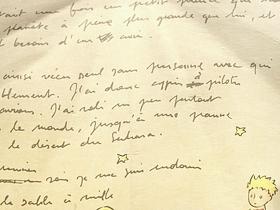 était une fois un petit prince qui
planète à peine plus grande que lui, et
besoin d'un ami.
ainsi vécu seul sans personne avec qui
blement. J'ai donc appris à piloter
avions. J'ai volé un peu partout
le monde, jusqu'à une panne
le désert du Sahara.
soir je me suis endormi
le sable à mille